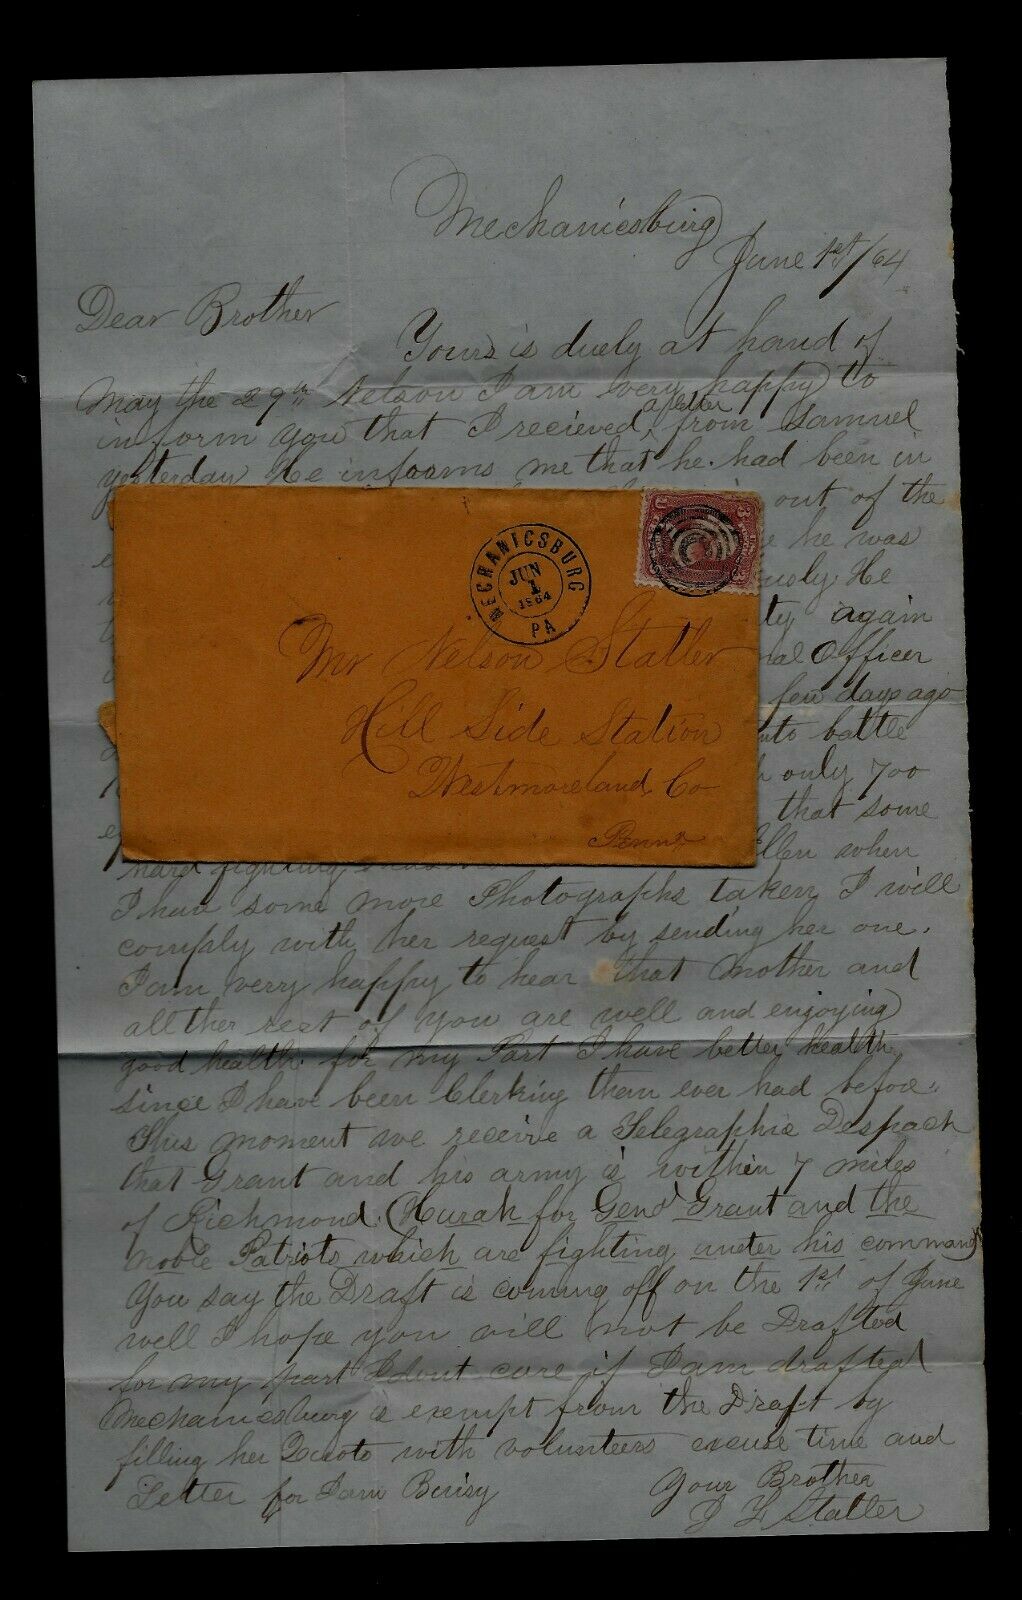 Mechanicsburg
June 1st/64
Dear Brother
Yours is duely at hand of
May the 29th Nelson I am very happy to
inform you that I recieved a letter from Samuel
yesterday He informs me that he had been in
out of the
he was
He
again
Officer
few days ago
into battle
only 700
that some
hard fighting
when
I have some more Photographs taken I will
comply with her request by sending her one.
I am very happy to hear that Mother and
all ther rest of you are well and enjoying
good health for my Part I have better health
since I have been Clerking than ever had before.
This moment we receive a Telegraphic Despach
that Grant and his army is within 7 miles
of Richmond (Hurah for Genl Grant and the
noble Patriots which are fighting under his command)
You say the Draft is coming off on the 1st of June
well I hope you will not be Drafted
for my part I dont care if I am drafted
Mechanicsburg is exempt from the Draft by
filling her Quoto with volunteers excuse time and
Letter for I am Buisy
Your Brother
J L Statler
MECHANICSBURG
JUN
1
1864
PA
U 3 S
Mr Nelson Statler
Hill Side Station
Westmoreland Co
Penna